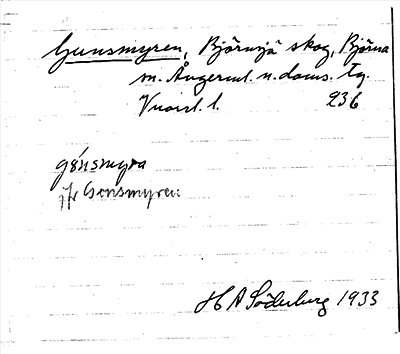 Gunsmyren, Björnsjö skog, Björna
sn. Ångerml. n. doms. tg.
236
gø̀nsmyra
jfr Gensmyren
H A Söderberg 1933